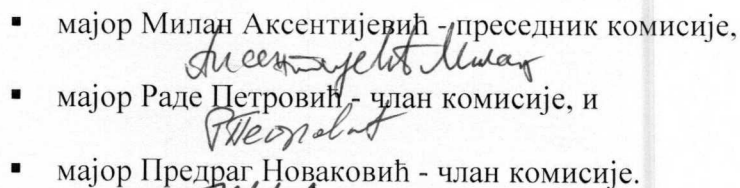 ▪ мајор Милан Аксентијевић - преседник комисије,
Аксентијевић Милан
▪ мајор Раде Петровић - члан комисије, и
РПетровић
▪ мајор Предраг Новаковић - члан комисије.